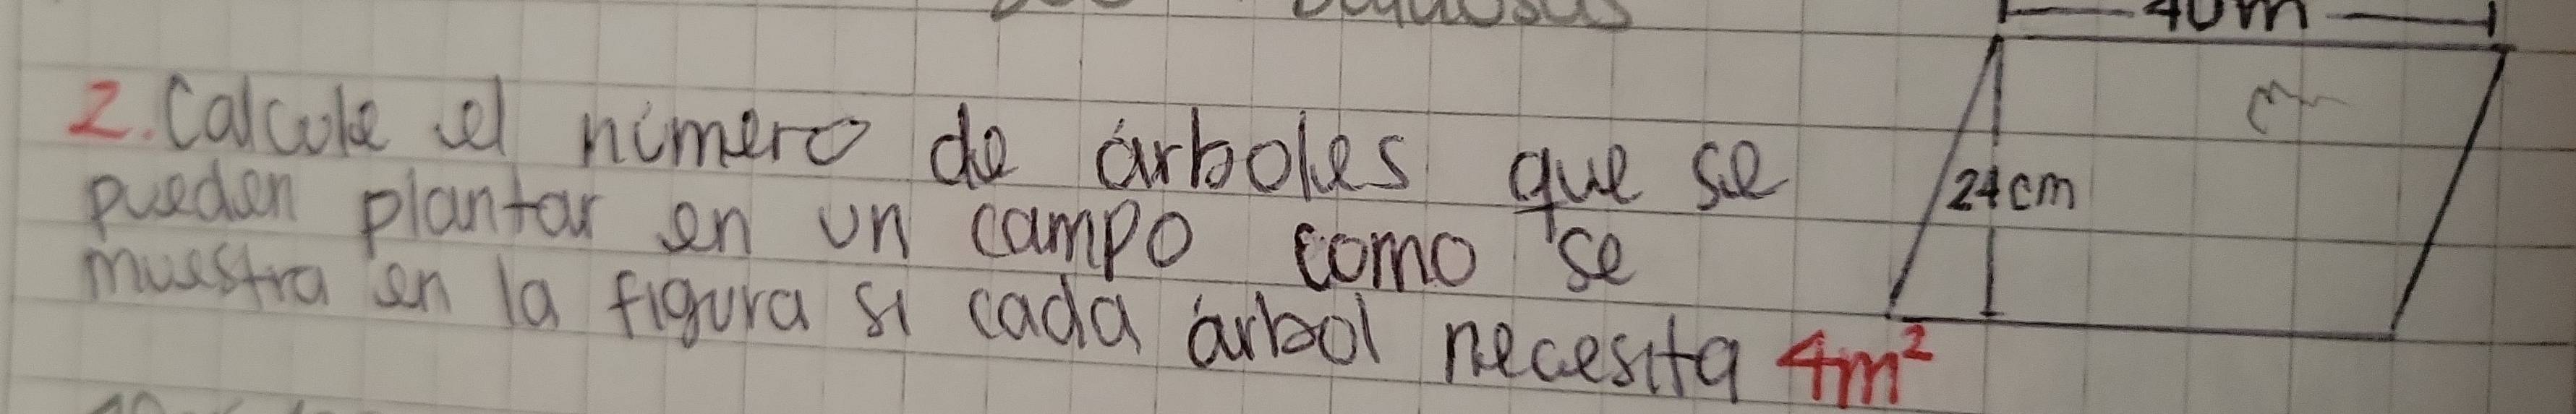 40m
2. Calcule el número de árboles que se
pueden plantar en un campo como se
muestra en la figura si cada árbol necesita 4m²
24cm